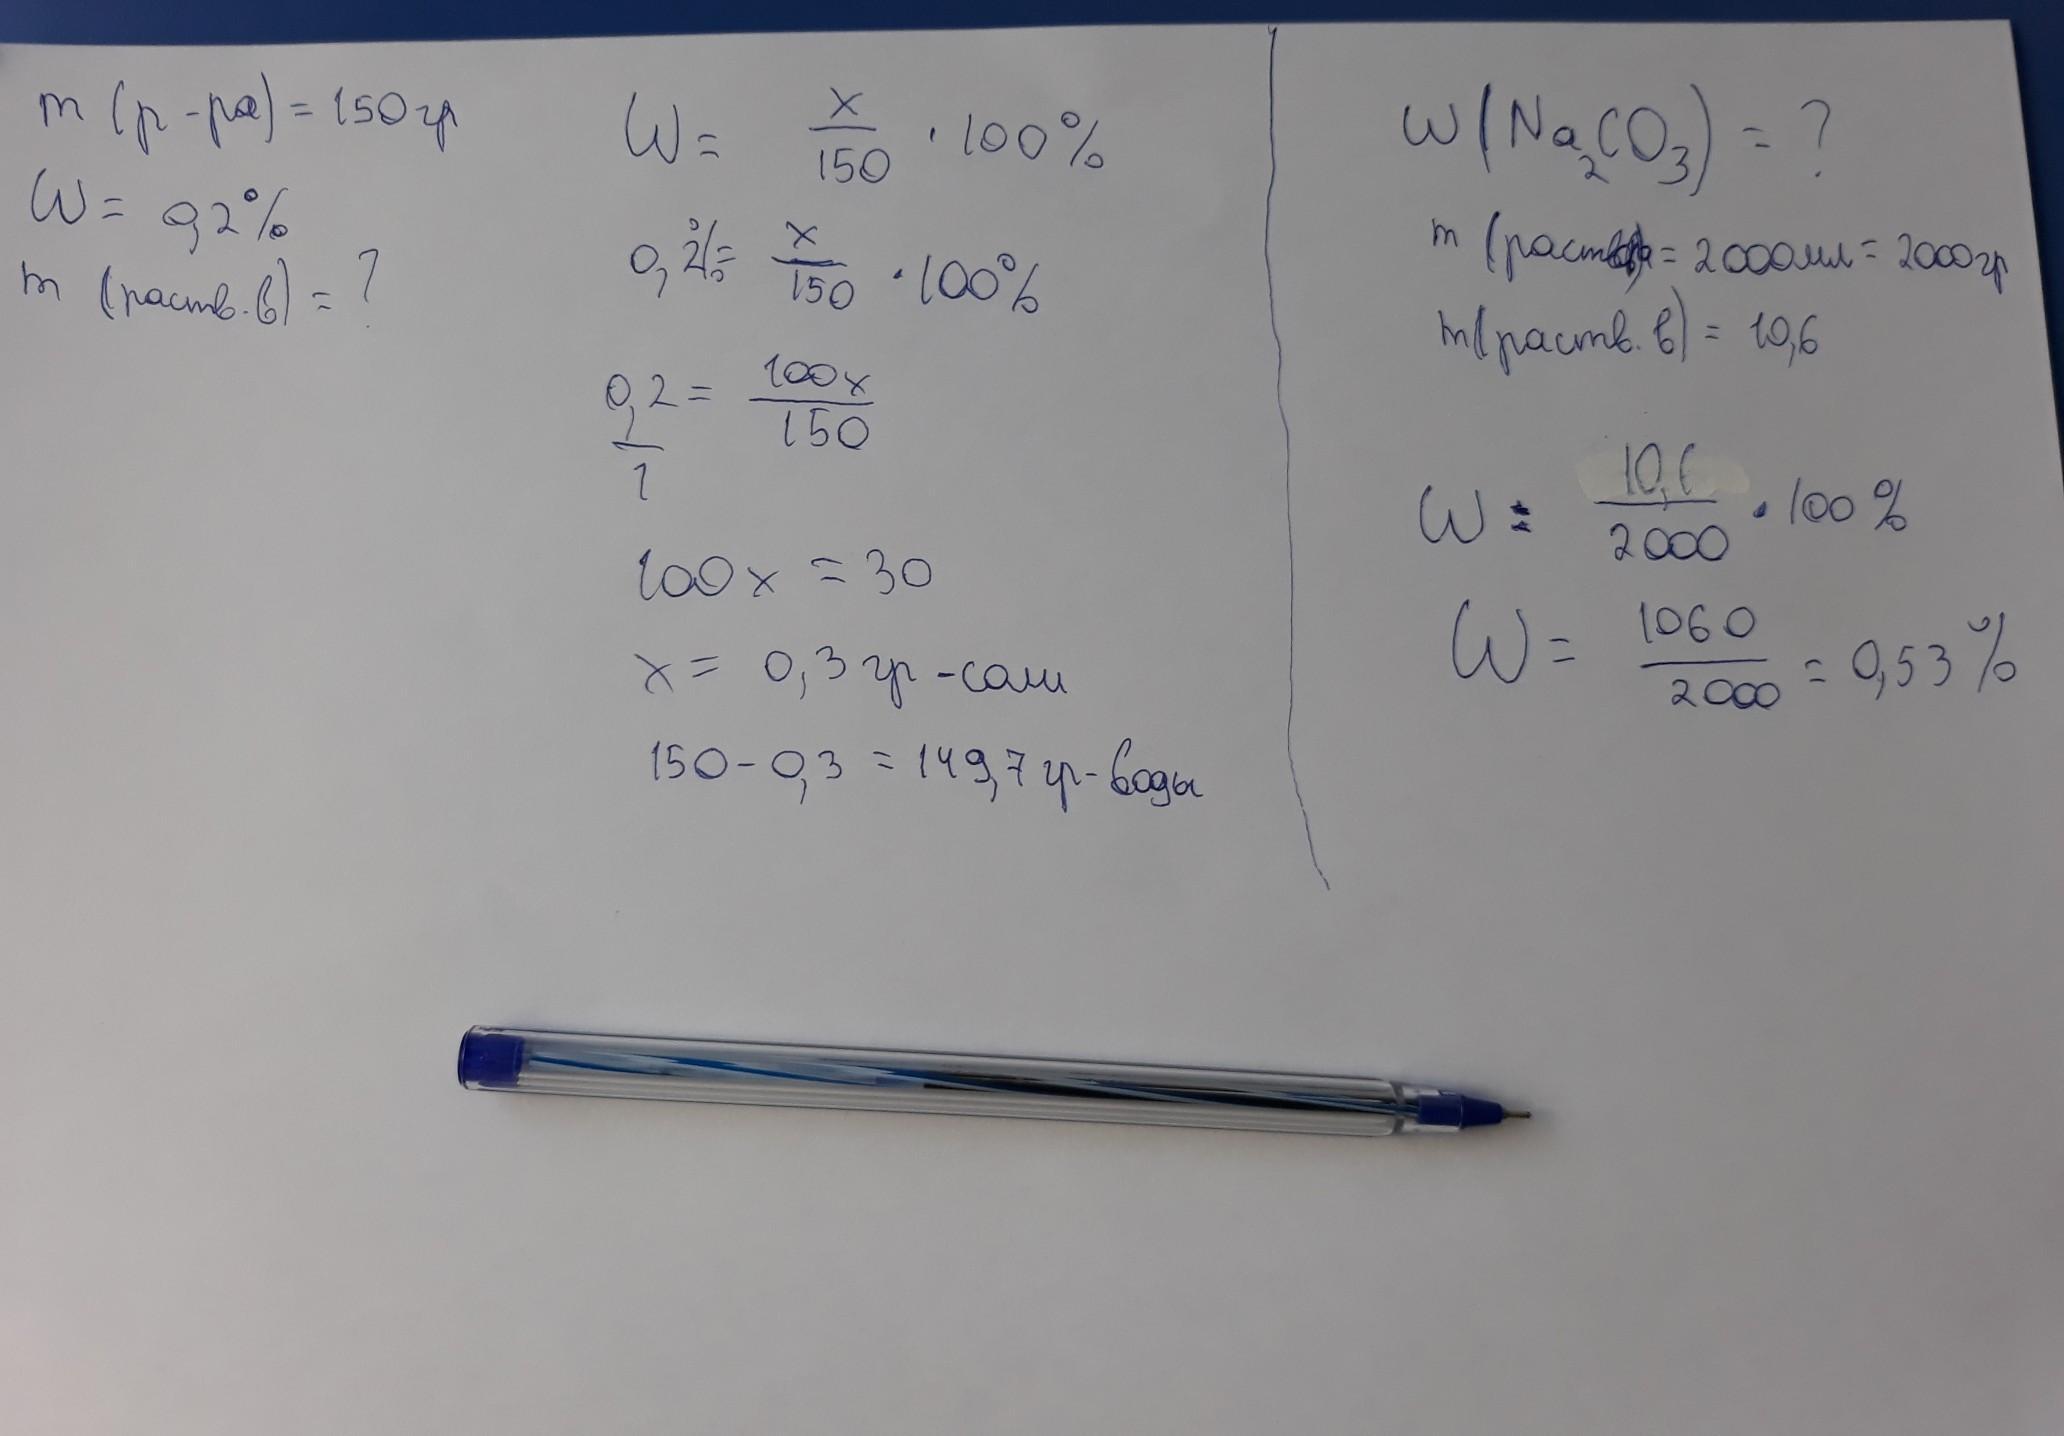 m (р-ра) = 150 гр
W = 0,2%
m (раств. в) = ?
W = x/150 · 100%
0,2% = x/150 · 100%
0,2/1 = 100x/150
100x = 30
x = 0,3 гр - соли
150 - 0,3 = 149,7 гр - воды
W(Na₂CO₃) = ?
m (раствора = 2000 мл = 2000 гр
m(раств. в) = 10,6
W = 10,6/2000 · 100%
W = 1060/2000 = 0,53%